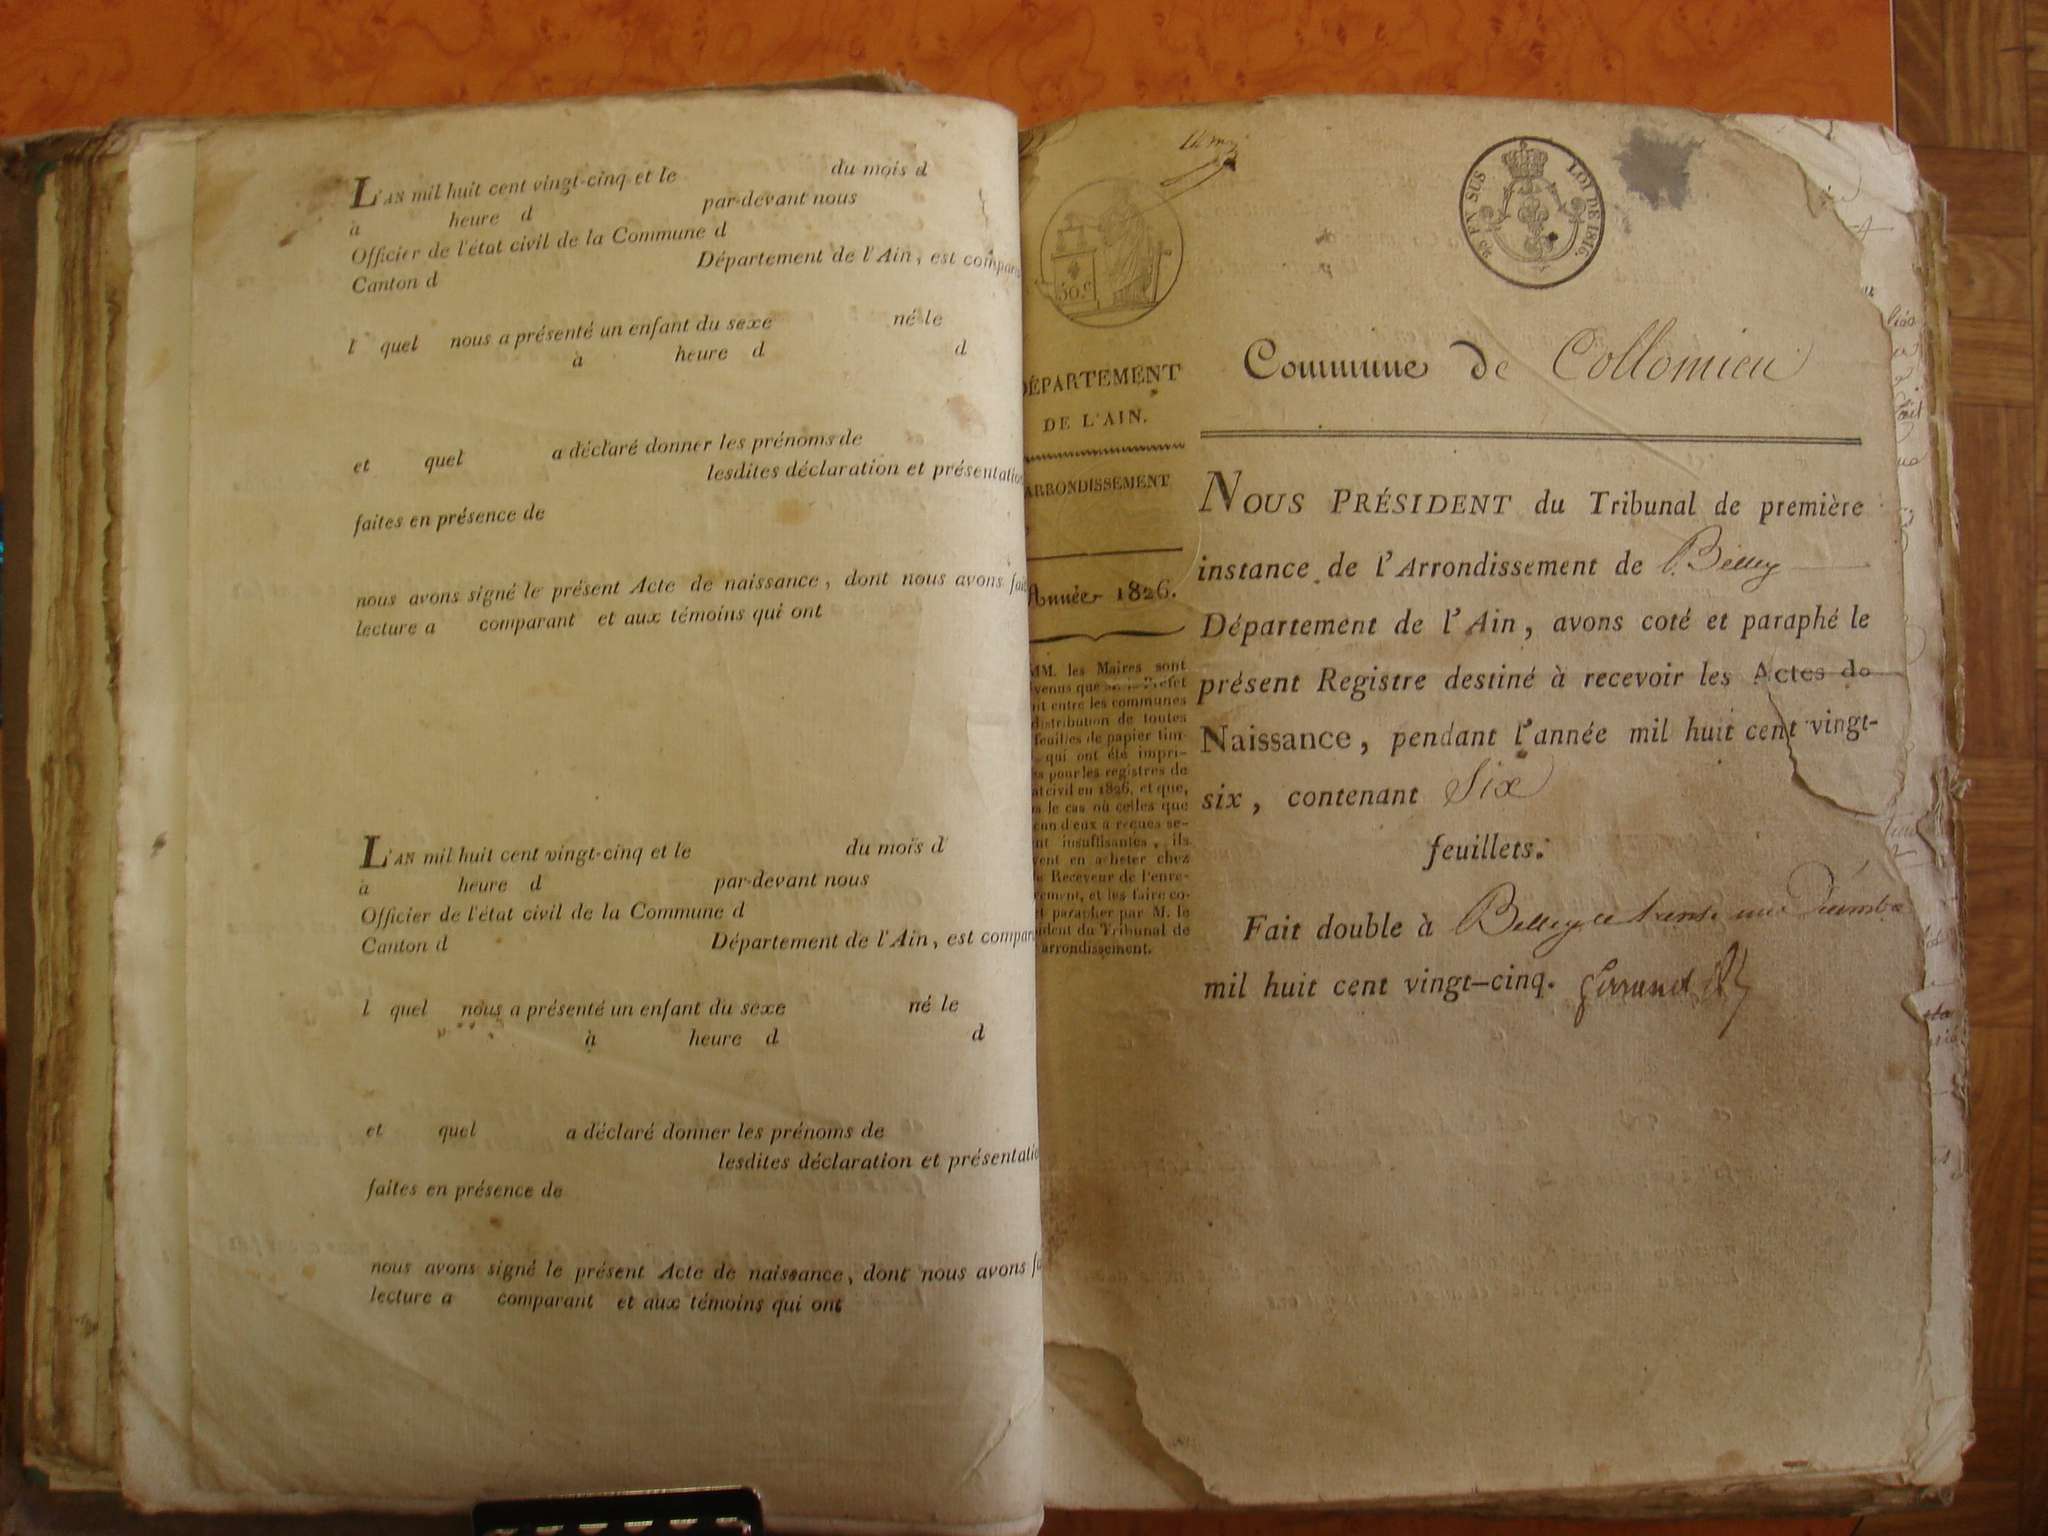 L'AN mil huit cent vingt-cinq et le du mois d
à heure d par-devant nous
Officier de l'état civil de la Commune d
Canton d Département de l'Ain, est compar
l quel nous a présenté un enfant du sexe né le
à heure d d
et quel a déclaré donner les prénoms de
lesdites déclaration et présentatio
faites en présence de
nous avons signé le présent Acte de naissance, dont nous avons fai
lecture a comparant et aux témoins qui ont
L'AN mil huit cent vingt-cinq et le du mois d
à heure d par-devant nous
Officier de l'état civil de la Commune d
Canton d Département de l'Ain, est compar
l quel nous a présenté un enfant du sexe né le
à heure d d
et quel a déclaré donner les prénoms de
lesdites déclaration et présentatio
faites en présence de
nous avons signé le présent Acte de naissance, dont nous avons fa
lecture a comparant et aux témoins qui ont
50.c
DÉPARTEMENT
DE L'AIN.
ARRONDISSEMENT
Année 1826.
MM. les Maires sont
venus que le Préfet
it entre les communes
distribution de toutes
feuilles de papier tim-
qui ont été impri-
s pour les registres de
at civil en 1826, et que,
s le cas où celles que
cun d'eux a reçues se-
nt insuffisantes, ils
vent en acheter chez
e Receveur de l'enre-
rement, et les faire co-
et parapher par M. le
sident du Tribunal de
arrondissement.
EN SUS LOI DE 1816.
Commune de Collomieu
NOUS PRÉSIDENT du Tribunal de première
instance de l'Arrondissement de Belley
Département de l'Ain, avons coté et paraphé le
présent Registre destiné à recevoir les Actes de
Naissance, pendant l'année mil huit cent vingt-
six, contenant Six
feuillets.
Fait double à Belley le trente un Décembre
mil huit cent vingt-cinq.